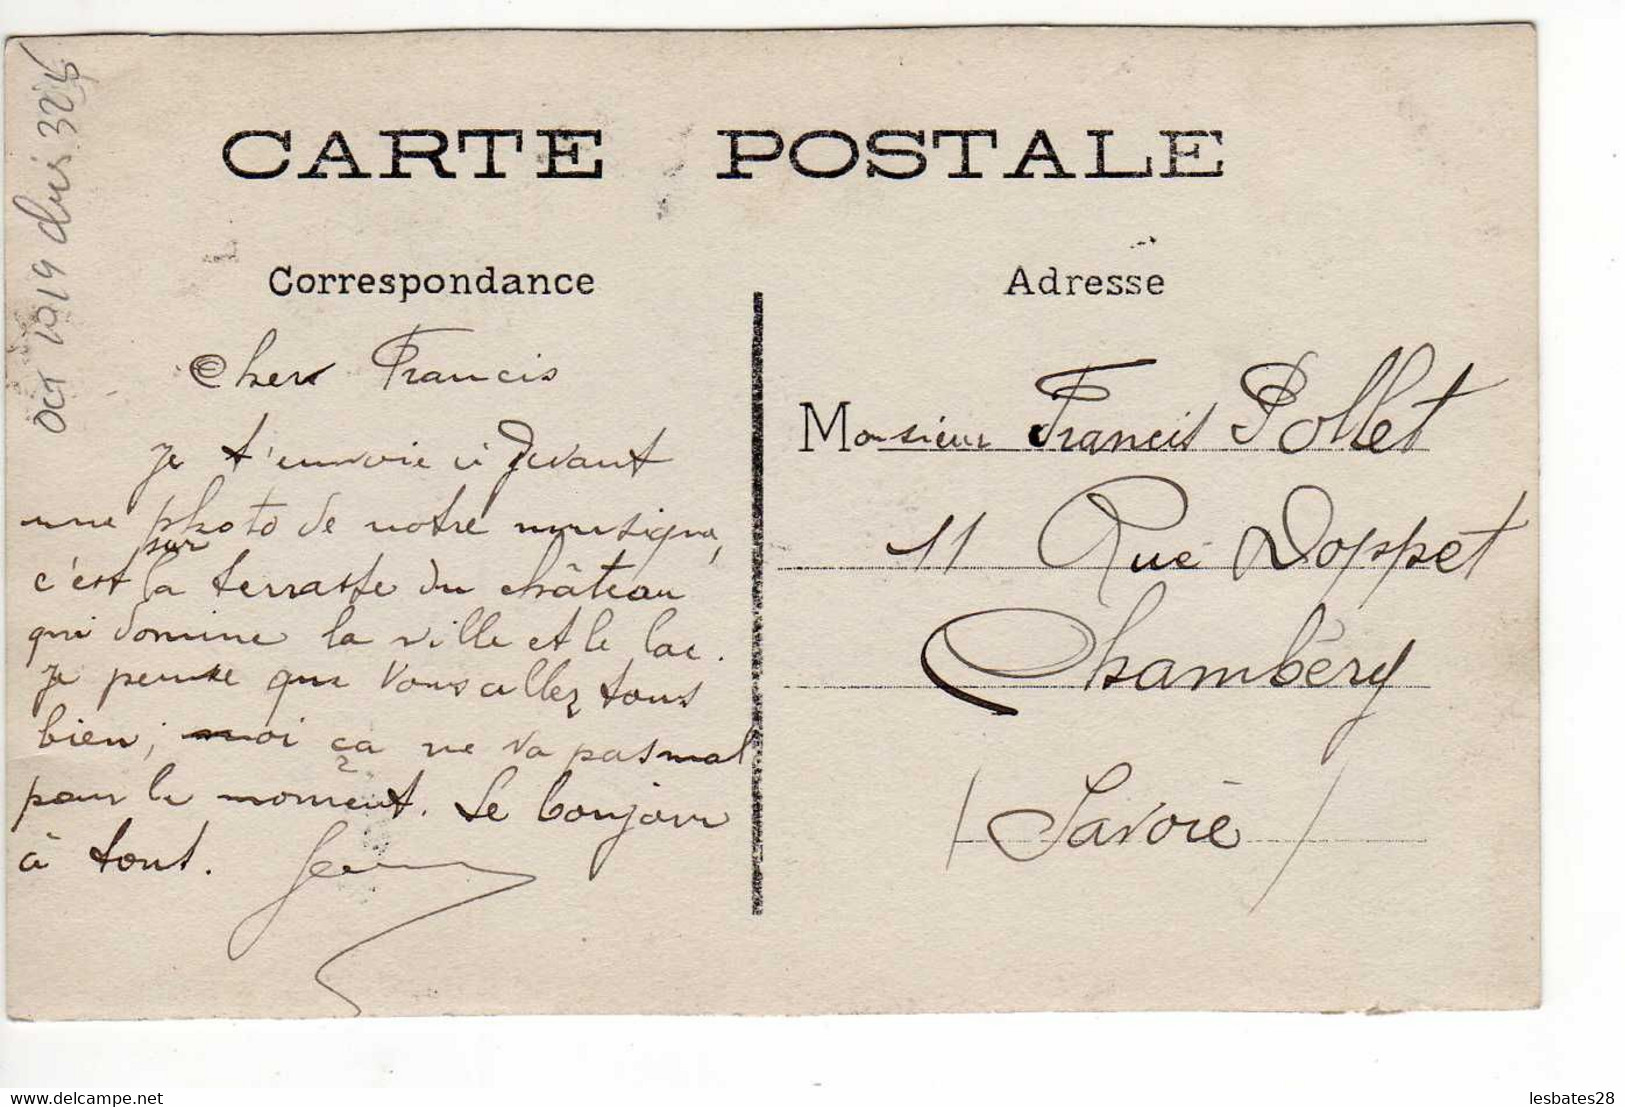 CARTE POSTALE
Correspondance
Adresse
Cher Francis
Je t'envoie ci devant
une photo de notre musique,
c'est sur la terrasse du château
qui domine la ville et le lac.
Je pense que vous allez tous
bien; moi ça ne va pas mal
pour le moment. Le bonjour
à tous.
Monsieur Francis Pollet
11 Rue Doppet
Chambéry
(Savoie)
Oct 1919
delcampe.net
lesbates28